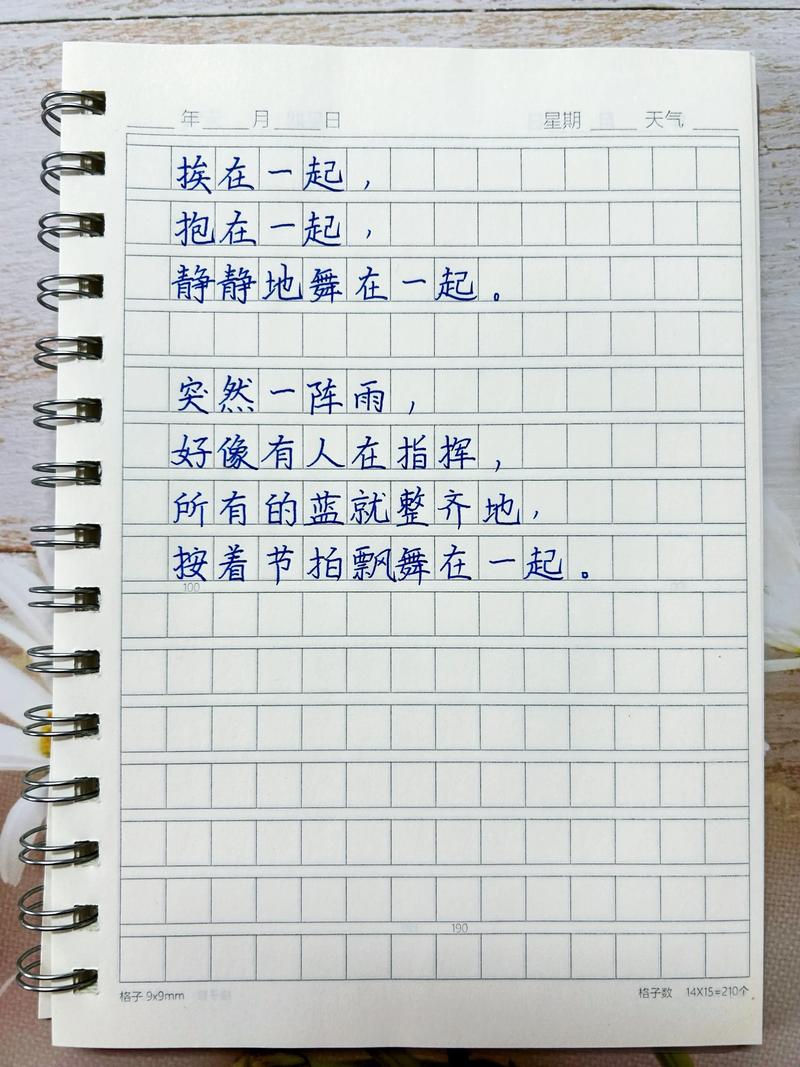 ____年____月____日 星期____ 天气____
挨在一起，
抱在一起，
静静地舞在一起。
突然一阵雨，
好像有人在指挥，
所有的蓝就整齐地，
按着节拍飘舞在一起。
100
190
格子 9x9mm 格子数 14X15=210个